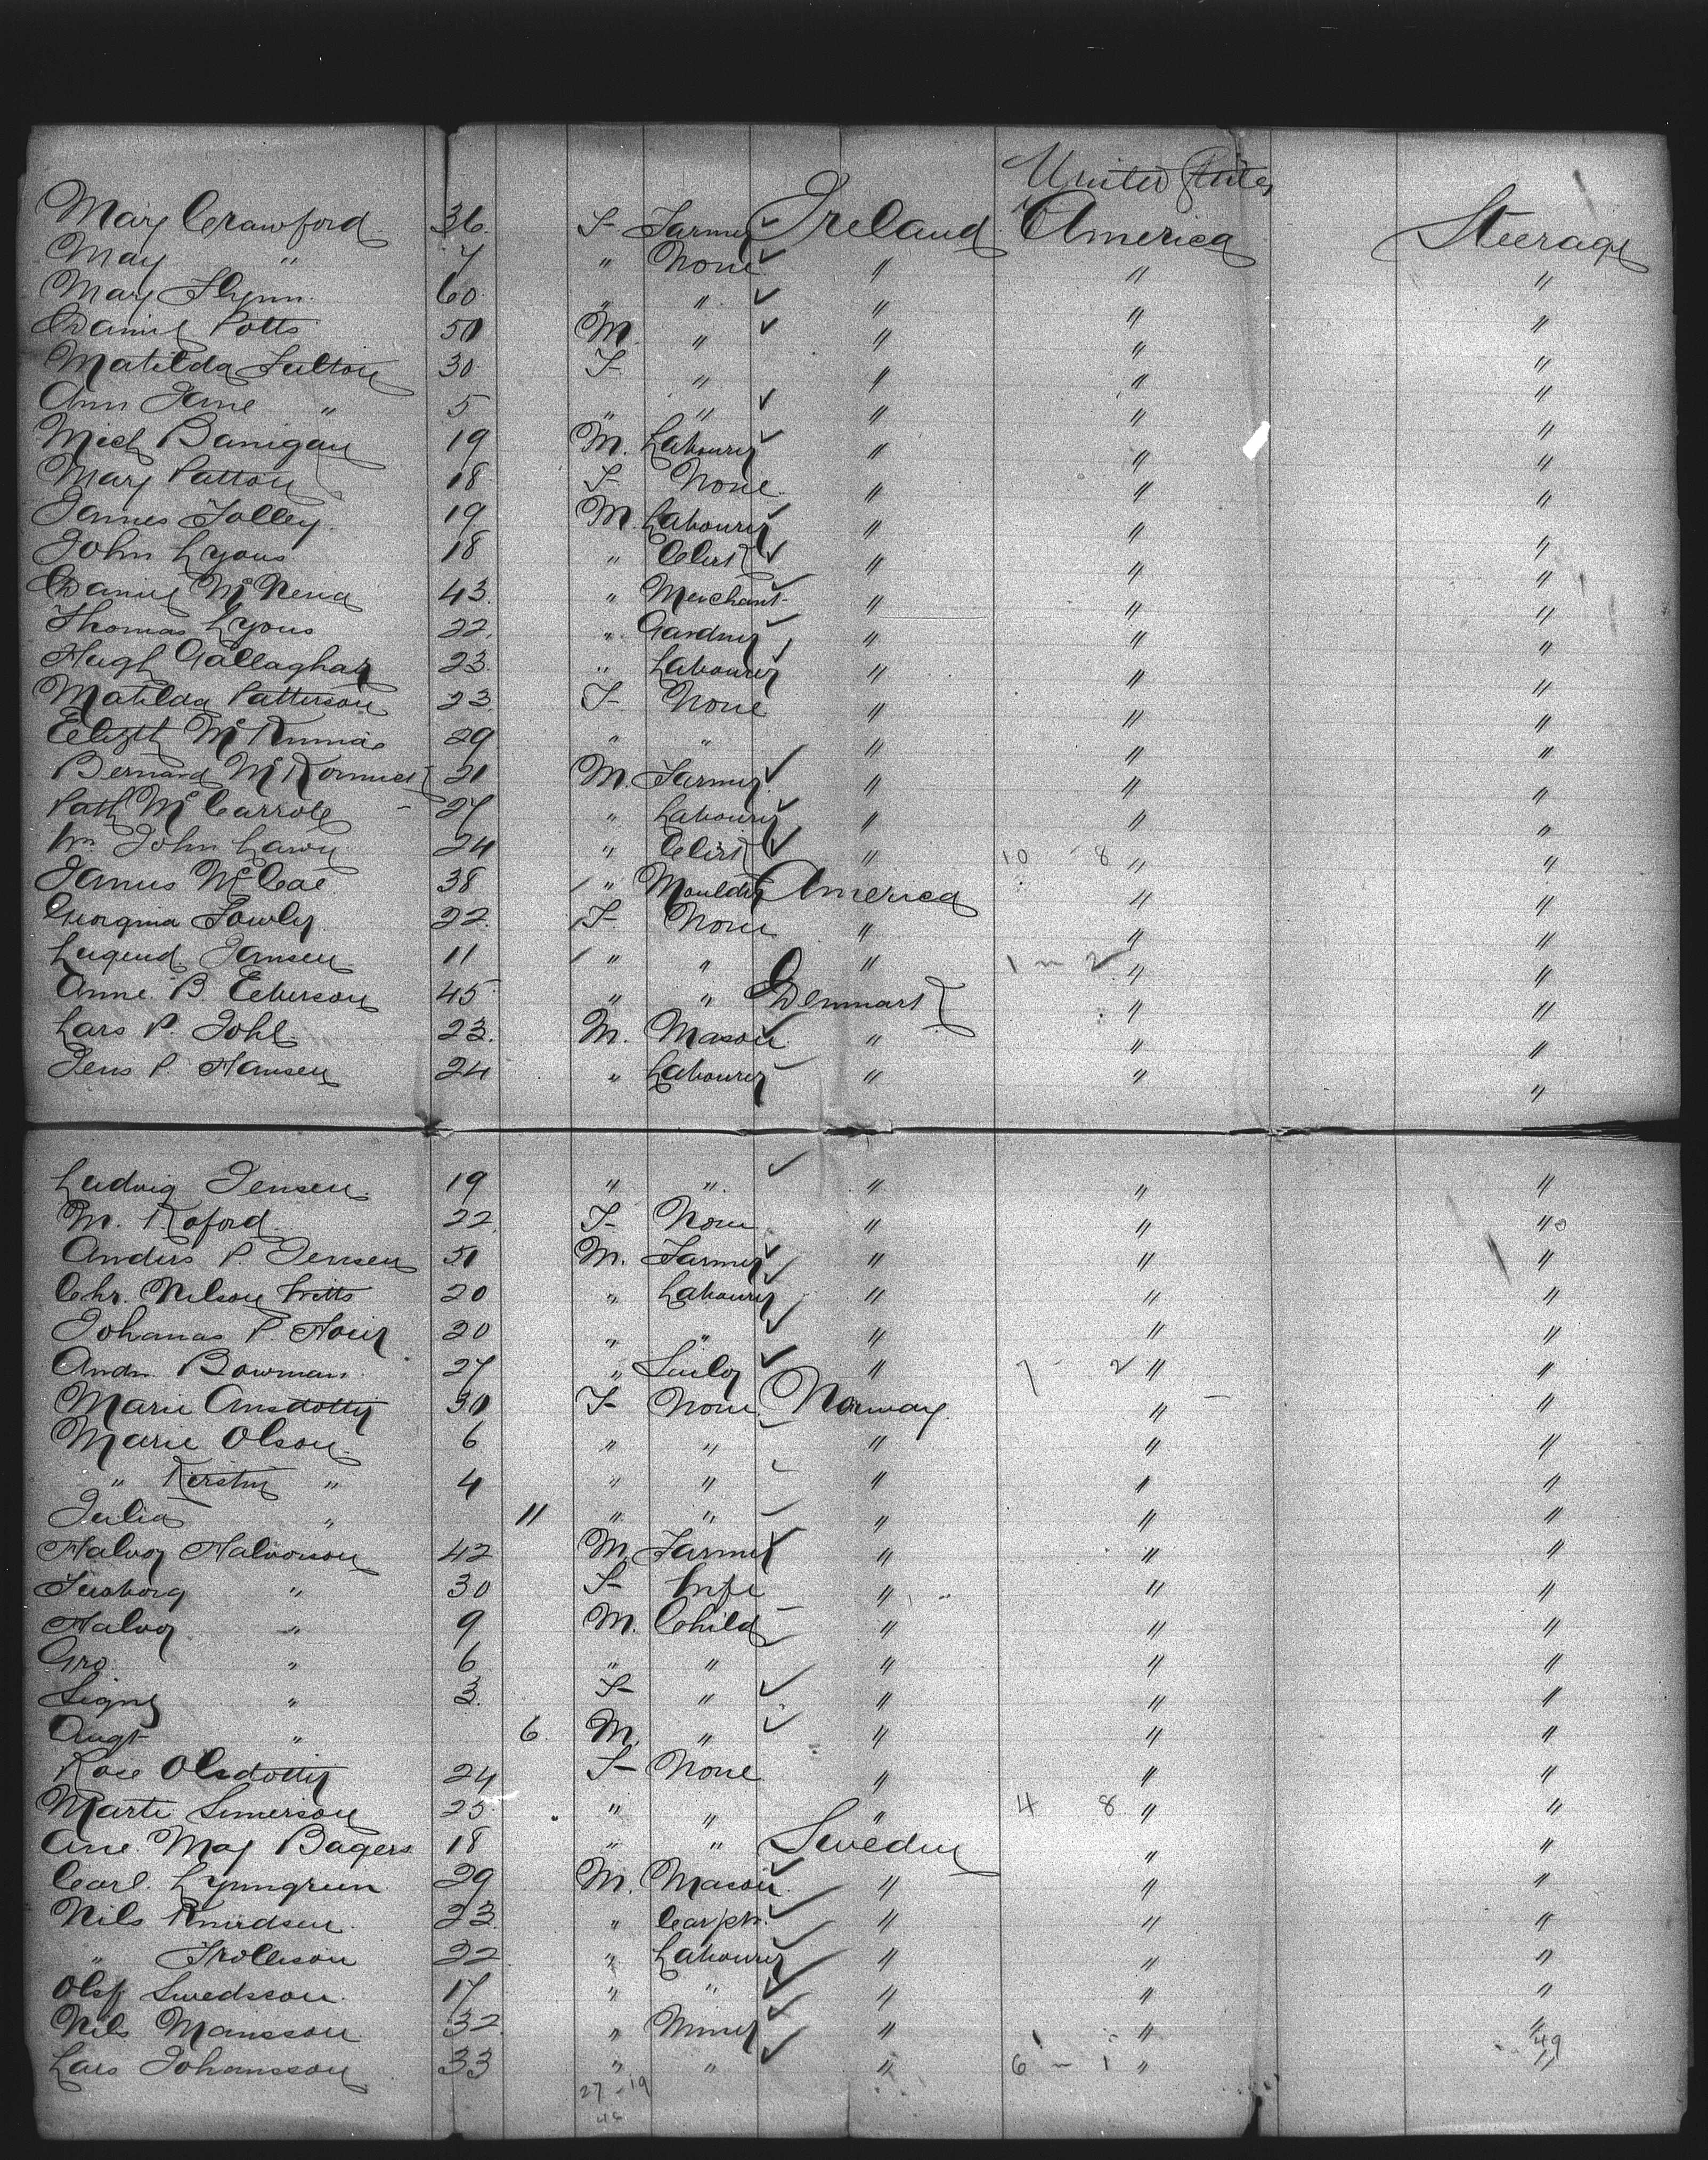 United States
Mary Crawford 36 F Farmer Ireland America Steerage
May " 7 " None " " "
Mary Flynn 60 " " " " "
Daniel Potts 50 M " " " "
Matilda Fulton 30 F " " " "
Ann Jane " 5 " " " " "
Mich Banigan 19 M. Labourer " " "
Mary Patton 18 F None " " "
James Folley 19 M. Labourer " " "
John Lyons 18 " Clerk " " "
Daniel 43 " Merchant " " "
Thomas Lyons 22 " Gardner " " "
Hugh Gallaghar 23 " Labourer " " "
Matilda Patterson 23 F None " " "
Elizth 29 " " " " "
Bernard 21 M. Farmer " " "
Path McCarroll 27 " Labourer " " "
Wm John 24 " Clerk " 10 - 8 " "
James McCae 38 " Moulder America " "
Georgina Fowler 22 F None " " "
Jansen 11 " " " 1 - 2 " "
Anne B. 45 " " Denmark " "
Lars P. Johl 23 M. Mason " " "
Jens P. Hansen 24 " Labourer " " "
Ludvig Jensen 19 " " " " "
M. Koford 22 F None " " "
Anders P. Jensen 51 M. Farmer " " "
Chr. Nilson Witts 20 " Labourer " " "
Johanas P. 20 " " " " "
Andr. Bowman 27 " Sailor " 7 - 2 " "
Marie 30 F None Norway " "
Marie Olson 6 " " " " "
" Kerstin " 4 " " " " "
Julia " 11 " " " " "
Halvor Halvorson 42 M. Farmer " " "
" 30 F Wife " " "
Halvor " 9 M. Child " " "
Gro " 6 " " " " "
Signe " 3 F " " " "
Augt " 6 M. " " " "
Olsdotter 24 F None " " "
Marte 25 " " " 4 8 " "
Ane May Bagers 18 " " Sweden " "
Carl Lynngreen 29 M. Mason " " "
Nils Knudsen 23 " Carptr. " " "
" 22 " Labourer " " "
Olof Swedsson 17 " " " " "
Nils Mansson 32 " Miner " " "
Lars Johansson 33 " " " 6 - 1 " "
49
27 - 19